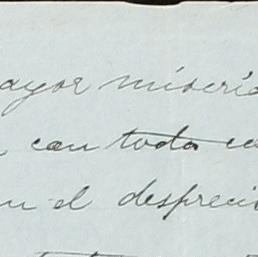 ayor miseria
con toda
en el desprecio